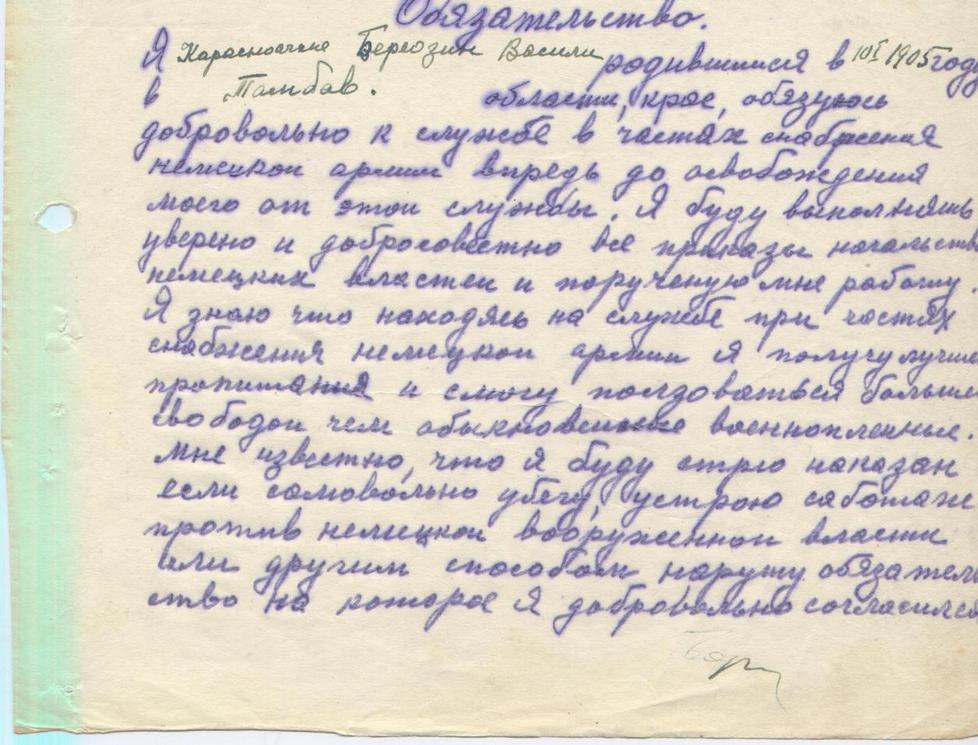 Обязательство.
Я Березин Васили родившийся в 10I 1905 году
в Тамбов. области, крае, обязуюсь
добровольно к службе в частях снабжения
немецкой армии впредь до освобождения
моего от этой службы. Я буду выполнять
уверено и добросовестно все приказы начальств
немецких властей и порученую мне работу.
Я знаю что находясь на службе при частях
снабжения немецкой армии я получу лучше
пропитания и смогу ползоваться больше
свободой чем обыкновенные военнопленные.
Мне известно, что я буду стрго наказан
если самовольно убегу, устрою саботаж
против немецкой вооруженной власти
или другим способом нарушу обязатель
ство на которое я добровольно согласился